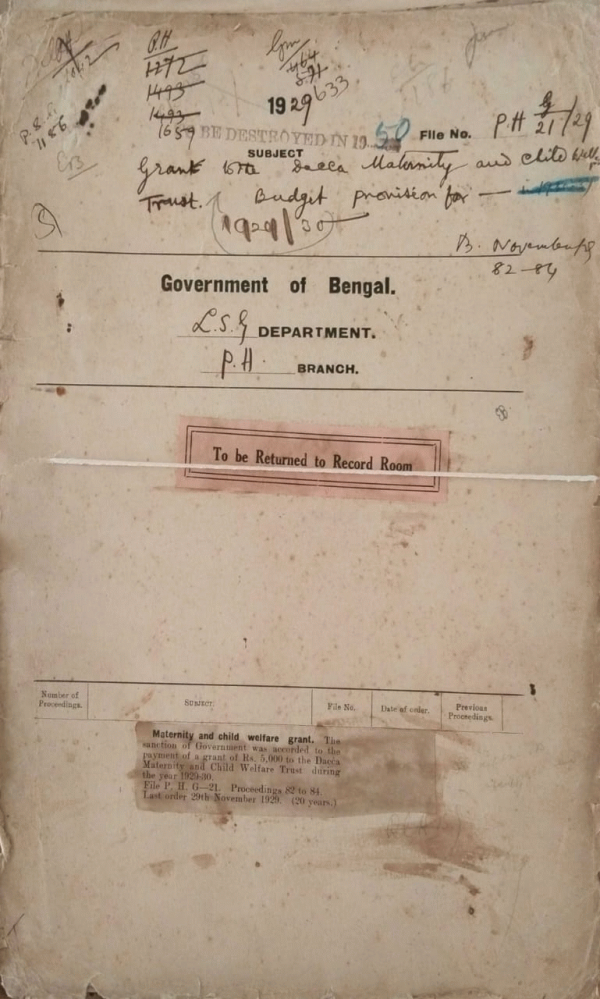 P.H
1272
1493
1493
1659
464
591
633
1929
BE DESTROYED IN 19 50
File No. P.H G/21/29
SUBJECT
Grant to the Dacca Maternity and Child Welf.
Trust. Budget provision for —
1929/30
B. November/29
82-84
Government of Bengal.
L.S.G DEPARTMENT.
P.H. BRANCH.
To be Returned to Record Room
Number of Proceedings. SUBJECT. File No. Date of order. Previous Proceedings.
Maternity and child welfare grant. The
sanction of Government was accorded to the
payment of a grant of Rs. 5,000 to the Dacca
Maternity and Child Welfare Trust during
the year 1929-30.
File P. H. G—21. Proceedings 82 to 84.
Last order 29th November 1929. (20 years.)